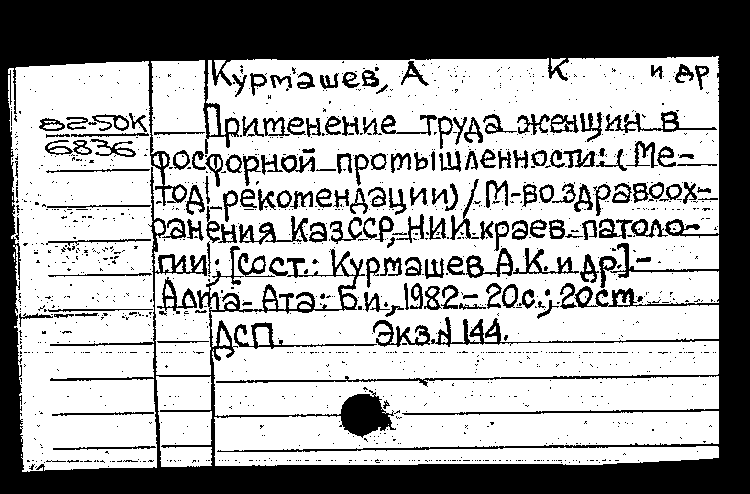 Курташев, А К и др
82-50К Применение труда женщин в
6836 фосфорной промышленности: (Ме-
тод рекомендации) / М-во здравоох-
ранения КазССР, НИИ краев. патоло-
гии; [сост.: Курташев А.К. и др].-
Алма-Ата: Б.и., 1982.- 20с.; 20ст.
ДСП. Экз.N 144.